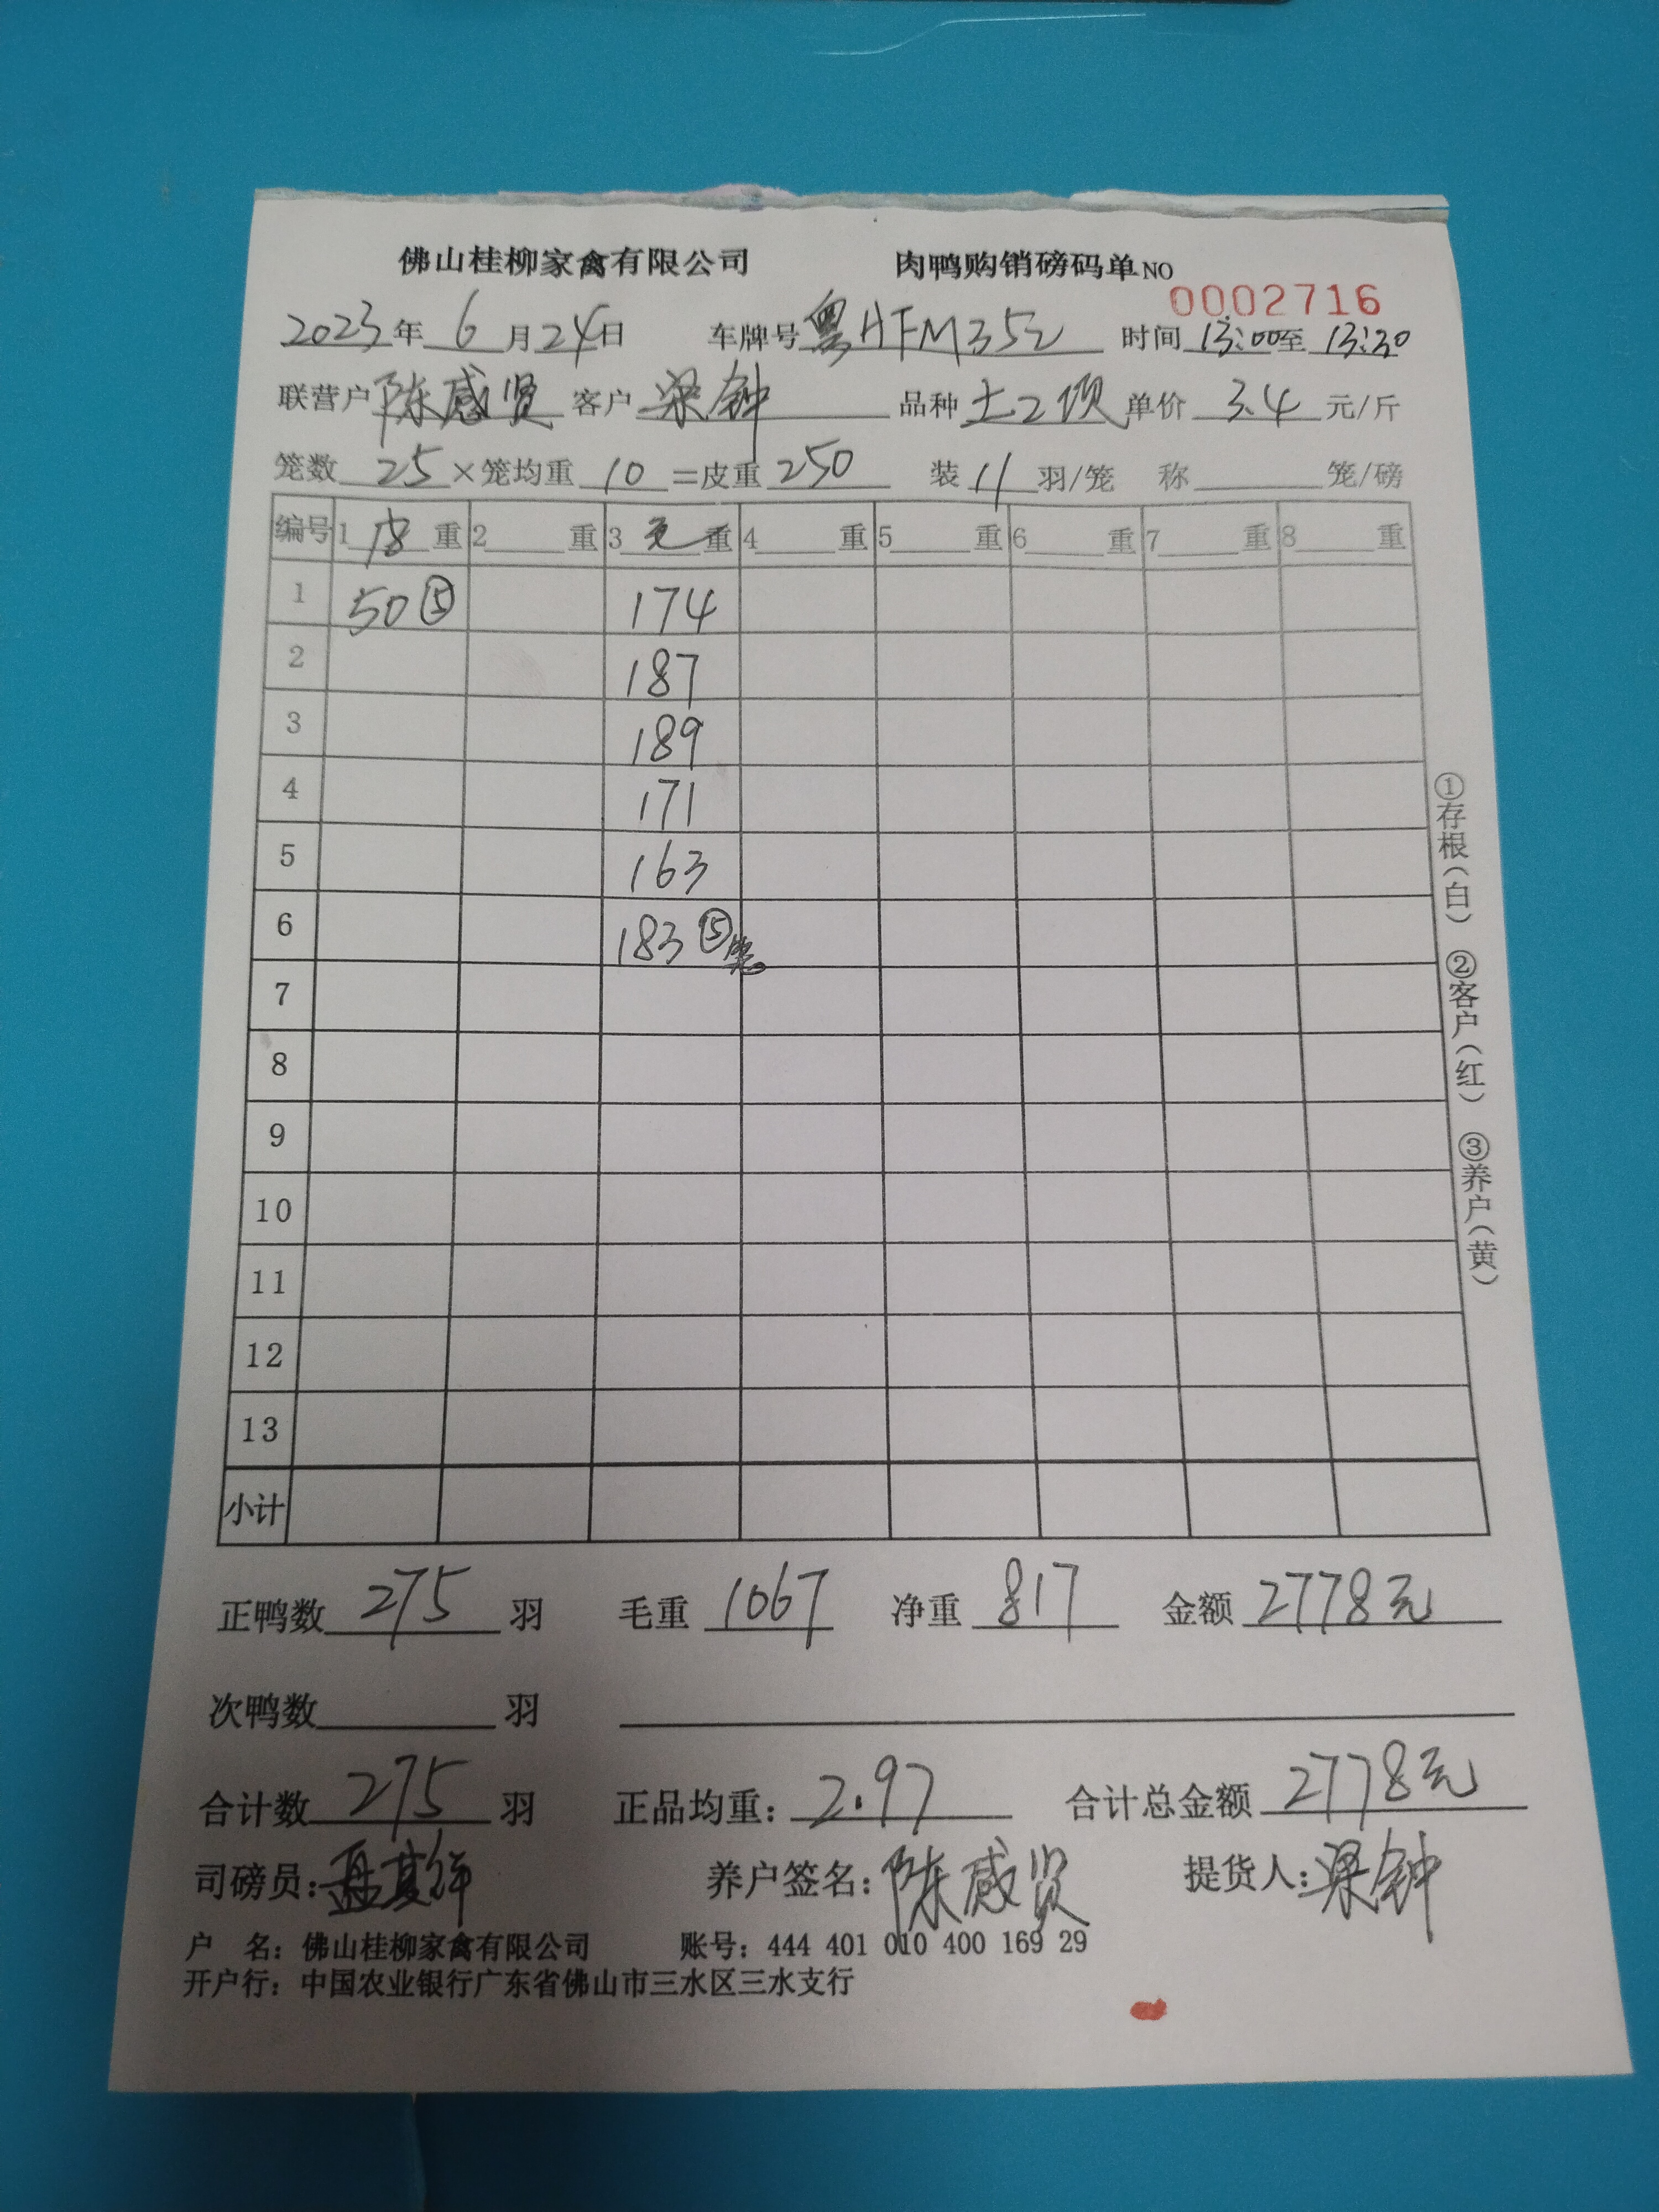 佛山桂柳家禽有限公司 肉鸭购销磅码单NO 0002716
2023年 6 月 24 日 车牌号 粤HFM352 时间 13:00 至 13:30
联营户 陈感贤 客户 梁钟 品种 土2项 单价 3.4 元/斤
笼数 25 ×笼均重 10 =皮重 250 装 11 羽/笼 称 笼/磅
编号 1 皮 重 2 重 3 毛 重 4 重 5 重 6 重 7 重 8 重
1 50⑤ 174
2 187
3 189
4 171
5 163
6 183⑤笼
7
8
9
10
11
12
13
小计
①存根(白) ②客户(红) ③养户(黄)
正鸭数 275 羽 毛重 1067 净重 817 金额 2778元
次鸭数 羽
合计数 275 羽 正品均重: 2.97 合计总金额 2778元
司磅员: 养户签名: 陈感贤 提货人: 梁钟
户 名: 佛山桂柳家禽有限公司 账号: 444 401 010 400 169 29
开户行: 中国农业银行广东省佛山市三水区三水支行